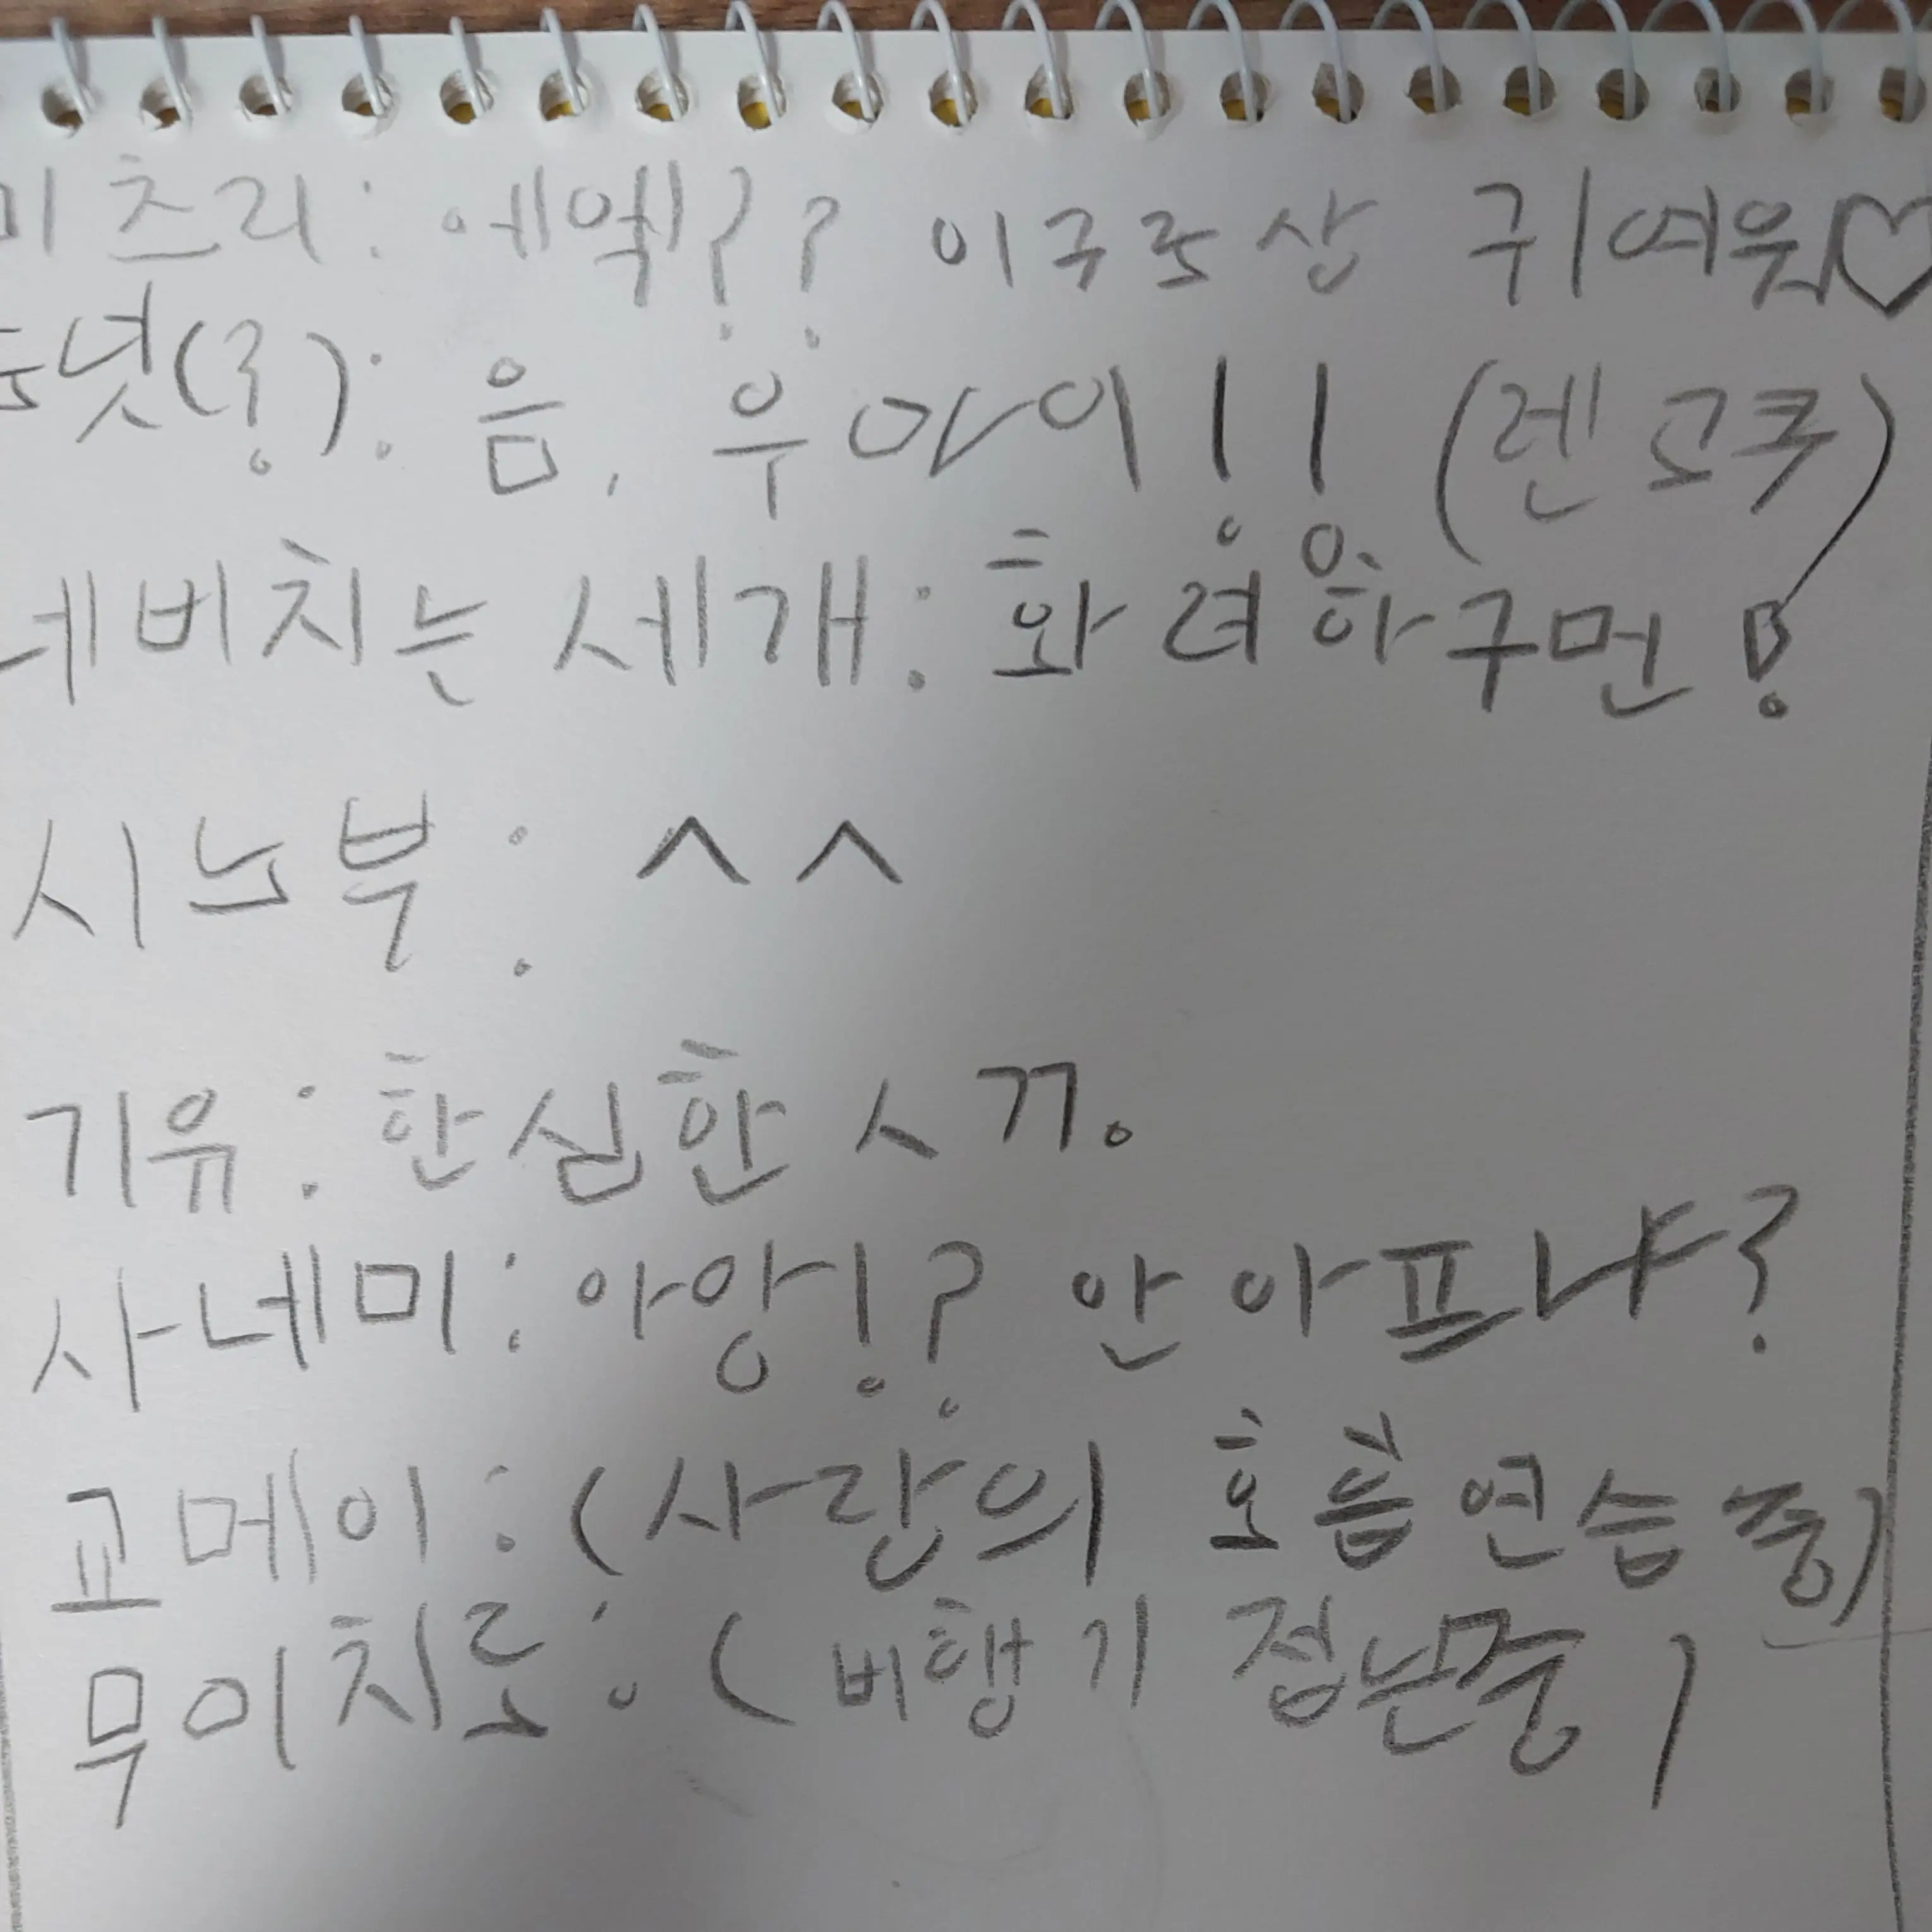 미츠리: 에엑?? 이구로상 귀여워♡
넛(?): 음, 우마이!! (렌고쿠)
네버치는 세개: 화려하구먼!
시노부: ^^
기유: 한심한 ㅅㄲ.
사네미: 아앙!? 안 아프냐?
교메이: (사랑의 호흡 연습 중)
무이치로: (비행기 접는중)